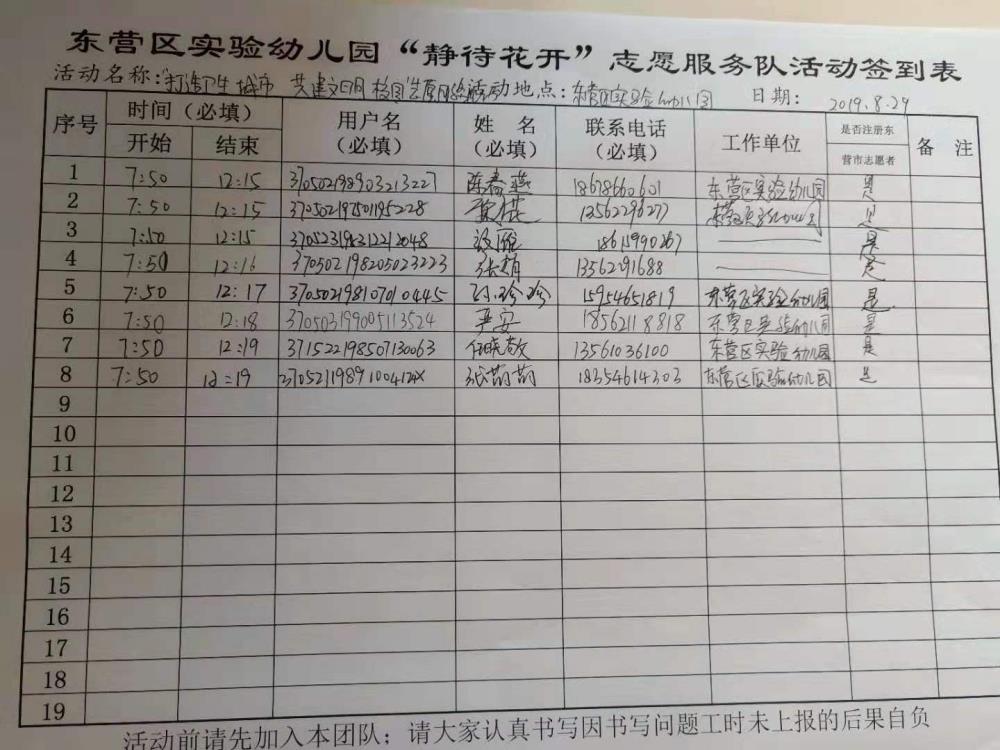 东营区实验幼儿园“静待花开”志愿服务队活动签到表
活动名称: 打造卫生城市 共建文明校园 活动地点: 东营区实验幼儿园 日期: 2019.8.29
序号 时间（必填） 用户名（必填） 姓 名（必填） 联系电话（必填） 工作单位 是否注册东营市志愿者 备 注
开始 结束
1 7:50 12:15 370502198903213227 陈春燕 18678660601 东营区实验幼儿园 是
2 7:50 12:15 370502197501195228 13562296277 东营区实验幼儿园 是
3 7:50 12:15 370523198312212048 是
4 7:50 12:16 370502198205023223 13562291688 是
5 7:50 12:17 370502198107010445 孙珍珍 15954651819 东营区实验幼儿园 是
6 7:50 12:18 370503199005113524 严安 18562118818 东营区实验幼儿园 是
7 7:50 12:19 371522198507130063 任晓敬 13561036100 东营区实验幼儿园 是
8 7:50 12:19 37052119891004124X 张萌萌 18354614303 东营区实验幼儿园 是
9
10
11
12
13
14
15
16
17
18
19
活动前请先加入本团队；请大家认真书写因书写问题工时未上报的后果自负